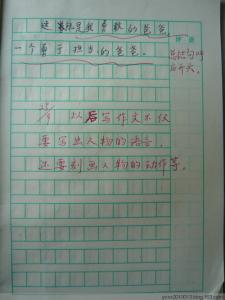 这就是我勇敢的爸爸，
一个勇于担当的爸爸。
总结句呼
应开头。
以后写作文不仅
要写出人物的语言，
还要刻画人物的动作等。